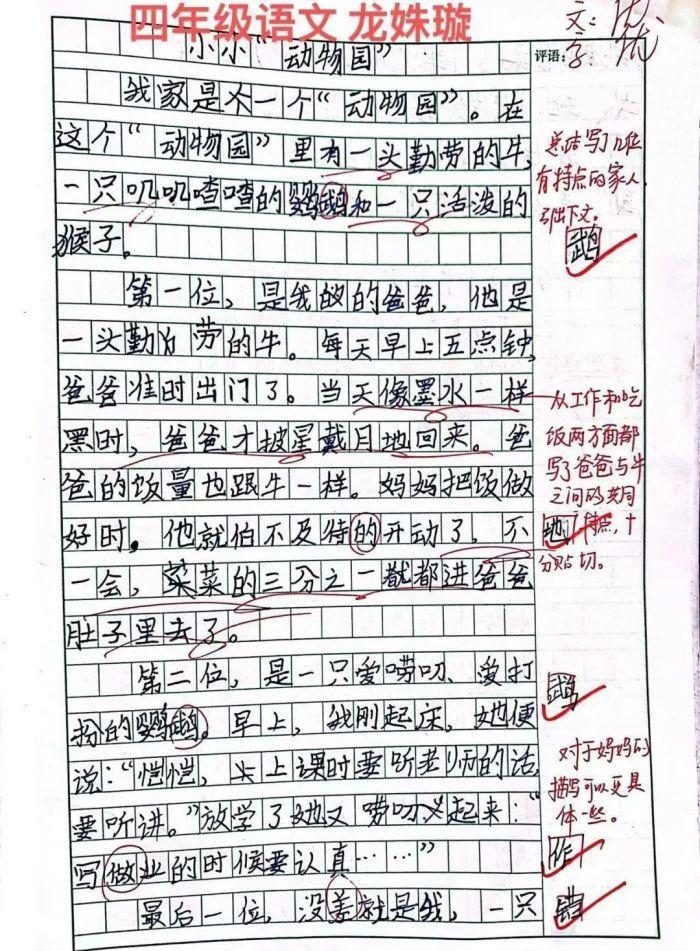 四年级语文 龙姝璇
小小“动物园”
我家是个一个“动物园”。在
这个“动物园”里有一头勤劳的牛,
一只叽叽喳喳的鹦鹉和一只活泼的
猴子。
第一位,是我的爸爸,他是
一头勤劳的牛。每天早上五点钟,
爸爸准时出门了。当天像墨水一样
黑时,爸爸才披星戴月地回来。爸
爸的饭量也跟牛一样。妈妈把饭做
好时。他就伯不及待的开动了,不
一会,菜的三分之一就都进爸爸
肚子里去了。
第二位,是一只爱唠叨、爱打
扮的鹦鹉。早上,我刚起床,她便
说:“恺恺,上课时要听老师的话,
要听讲。”放学了她又唠叨起来:“
写做业的时候要认真……”
最后一位,没差就是我,一只
评语:
文:优
字:优
总结写了几位
有特点的家人,
引出下文。
鹉
从工作和吃
饭两方面都
写了爸爸与牛
之间的共同
地 特点,十
分贴切。
鹉
对于妈妈的
描写可以更具
体一些。
作
错